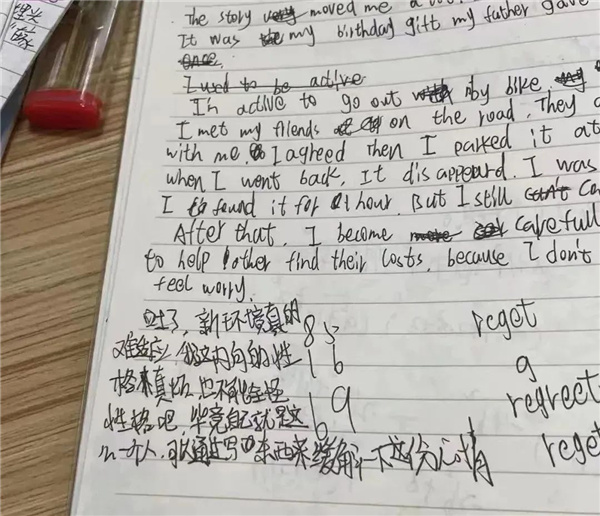 The story moved me a
It was my birthday gift my father gave
once.
I used to be active
I'm active to go out by bike,
I met my friends on the road. They
with me. I agreed then I parked it at
when I went back, It disappeard. I was
I found it for 1 hour. But I still can't
After that, I become more carefull
to help other find their costs, because I don't
feel worry.
吐了，新环境真的 85 reget
难适应，我这内向的性 16 g
格真坏，也不能全怪 19 regreet
性格吧，毕竟自己就是这 6 reget
么一个人，可以通过写东西来缓解一下这份心情